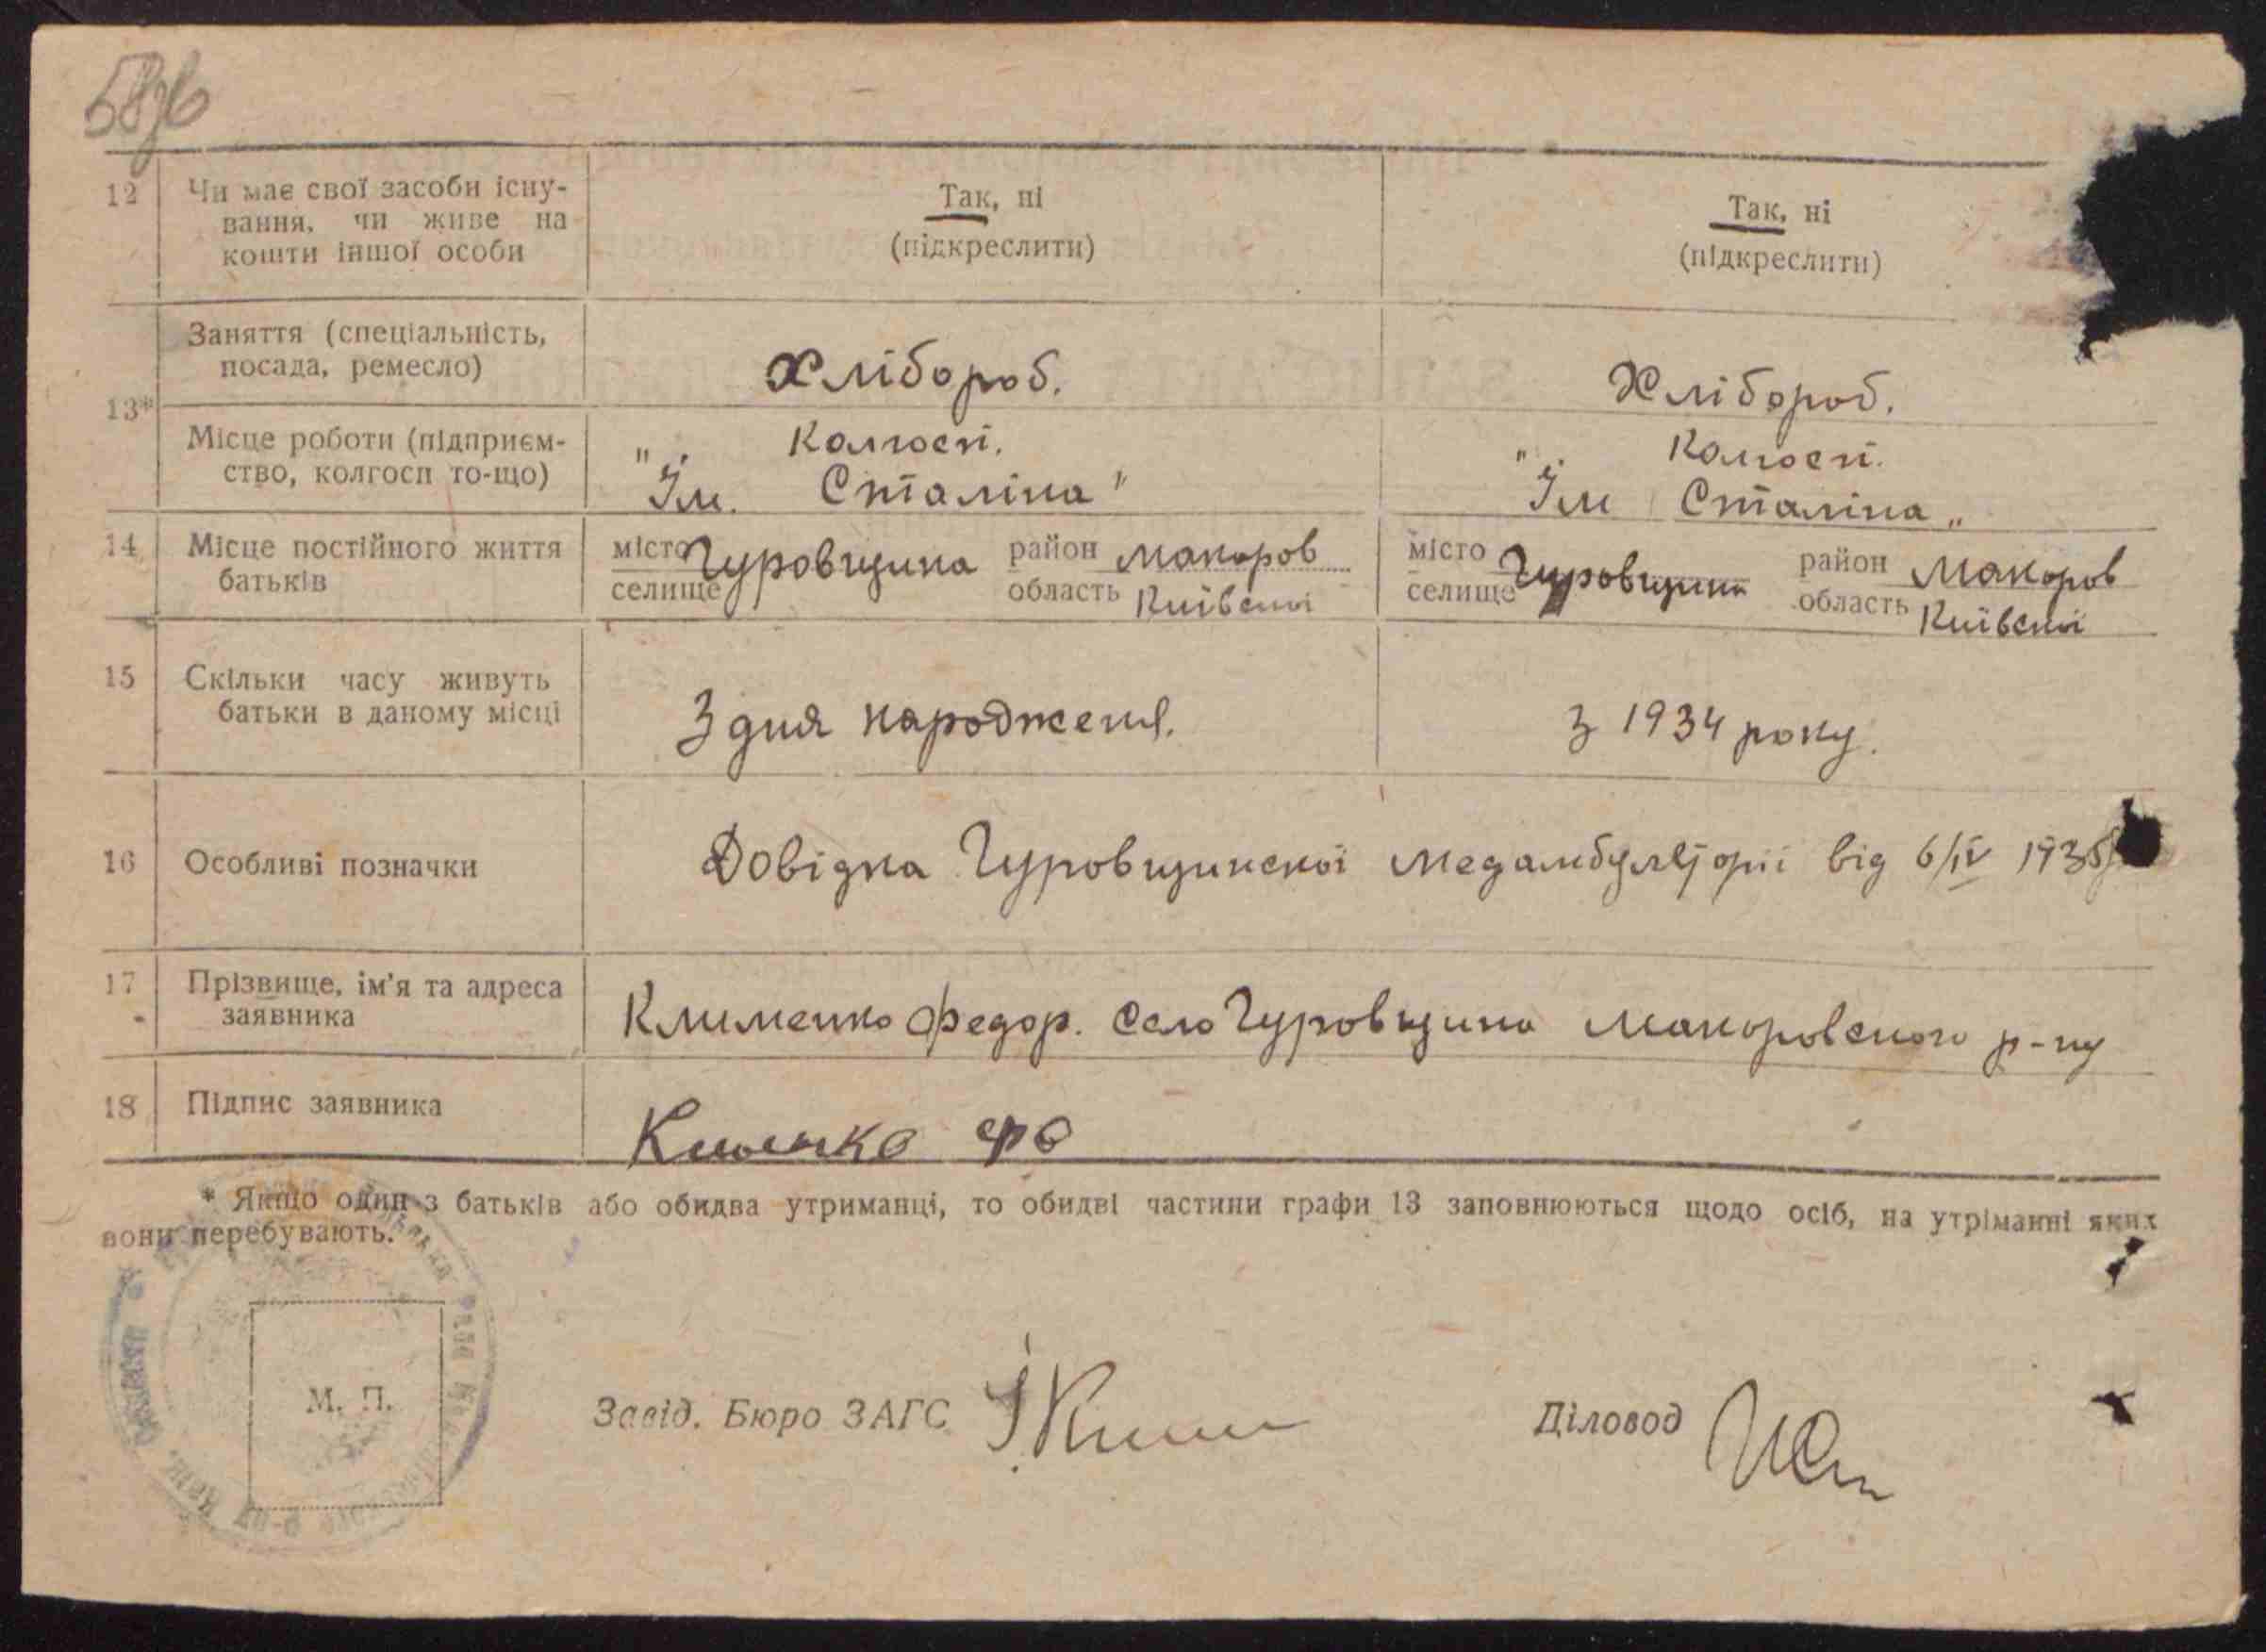 58зв
12 Чи має свої засоби існу- Так, ні Так, ні
вання, чи живе на (підкреслити) (підкреслити)
кошти іншої особи
Заняття (спеціальність,
посада, ремесло) Хлібороб. Хлібороб.
13*
Місце роботи (підприєм- Колгосп. Колгосп.
ство, колгосп то-що) "Ім. Сталіна" "Ім Сталіна"
14 Місце постійного життя місто Гуровщина район Макоров місто Гуровщина район Макоров
батьків селище область Київскої селище область Київскої
15 Скільки часу живуть
батьки в даному місці З дня народженя. з 1934 року.
16 Особливі позначки Довідка Гуровщинскої медамбуляторії від 6/IV 1935
17 Прізвище, ім'я та адреса
заявника Клименко Федор. село Гуровщина Макоровского р-ну
18 Підпис заявника
* Якщо один з батьків або обидва утриманці, то обидві частини графи 13 заповнюються щодо осіб, на утріманні яких
вони перебувають.
М. П.
Завід. Бюро ЗАГС Діловод